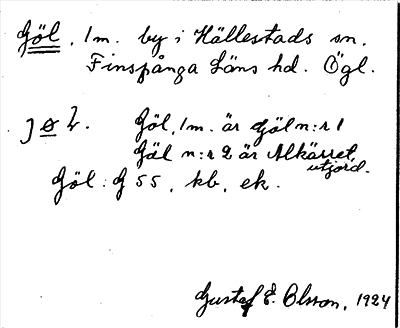 Göl, 1 m. by i Hällestads sn.
Finspånga Läns hd. Ögl.
jøL. Göl, 1 m. är Göl n:r 1
Göl n:r 2 är Alkärret
utjord.
Göl: G 55, kb, ek.
Gustaf E. Olsson, 1924